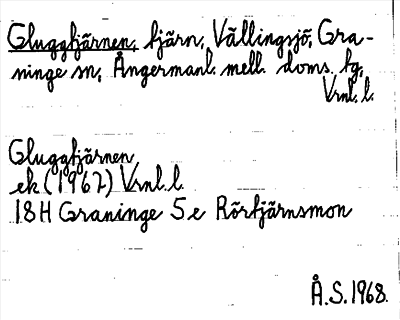 Gluggtjärnen, tjärn, Vällingsjö, Gra-
ninge sn, Ångermanl. mell. doms. tg,
Vrnl. l.
Gluggtjärnen
ek (1967) Vrnl. l.
18H Graninge 5e Rörtjärnsmon
Å.S. 1968.